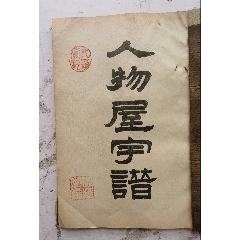 人物屋宇譜